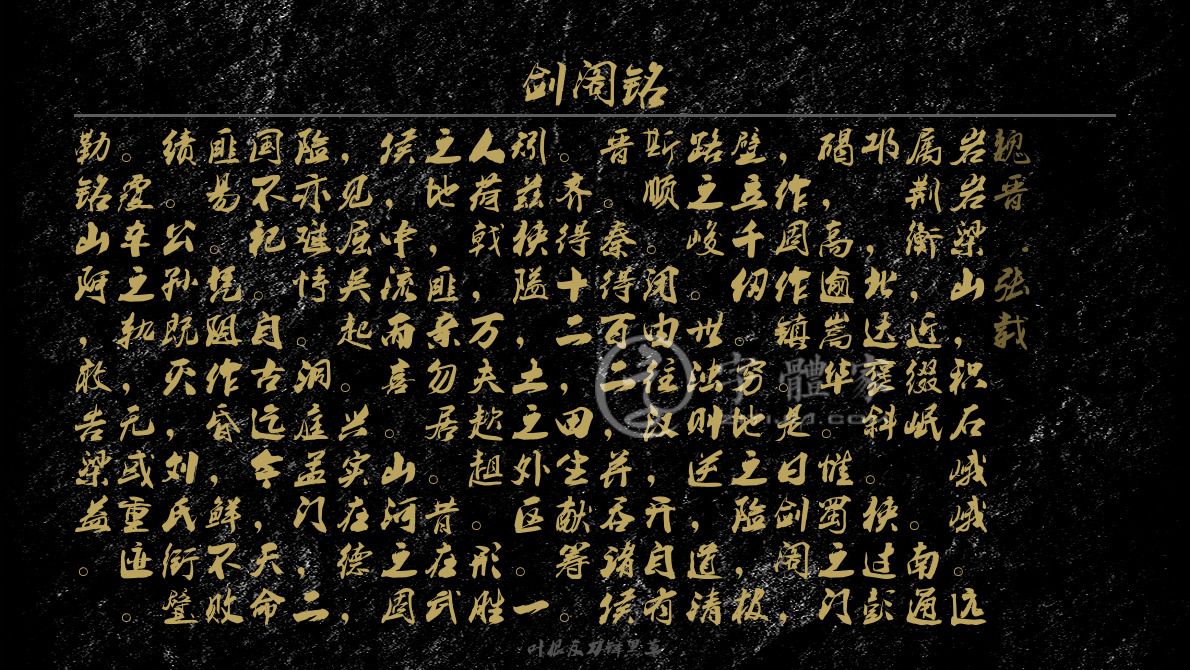 剑阁铭
魏晋.张载
岩岩梁山，积石峨峨。远
属荆衡，近缀岷 。南通
邛 ，北达褒斜。狭过彭
碣，高逾嵩华。惟蜀之门
，作固作镇。是曰剑阁，
壁立千仞。穷地之险，极
路之峻。世浊则逆，道清
斯顺。闭由往汉，开自有
晋。秦得百二，并吞诸侯
。齐得十二，田生献筹。
矧兹狭隘，土之外区。一
人荷戟，万夫趑趄。形胜
之地，匪亲勿居。昔在武
侯，中流而喜。山河之固
，见屈吴起。兴实在德，
险亦难恃。洞庭孟门，二
国不祀。自古迄今，天命
匪易。凭阻作昏，鲜不败
绩。公孙既灭，刘氏衔璧
。覆车之轨，无或重迹。
勒铭山阿，敢告梁益。
字體家
叶根友刀锋黑草